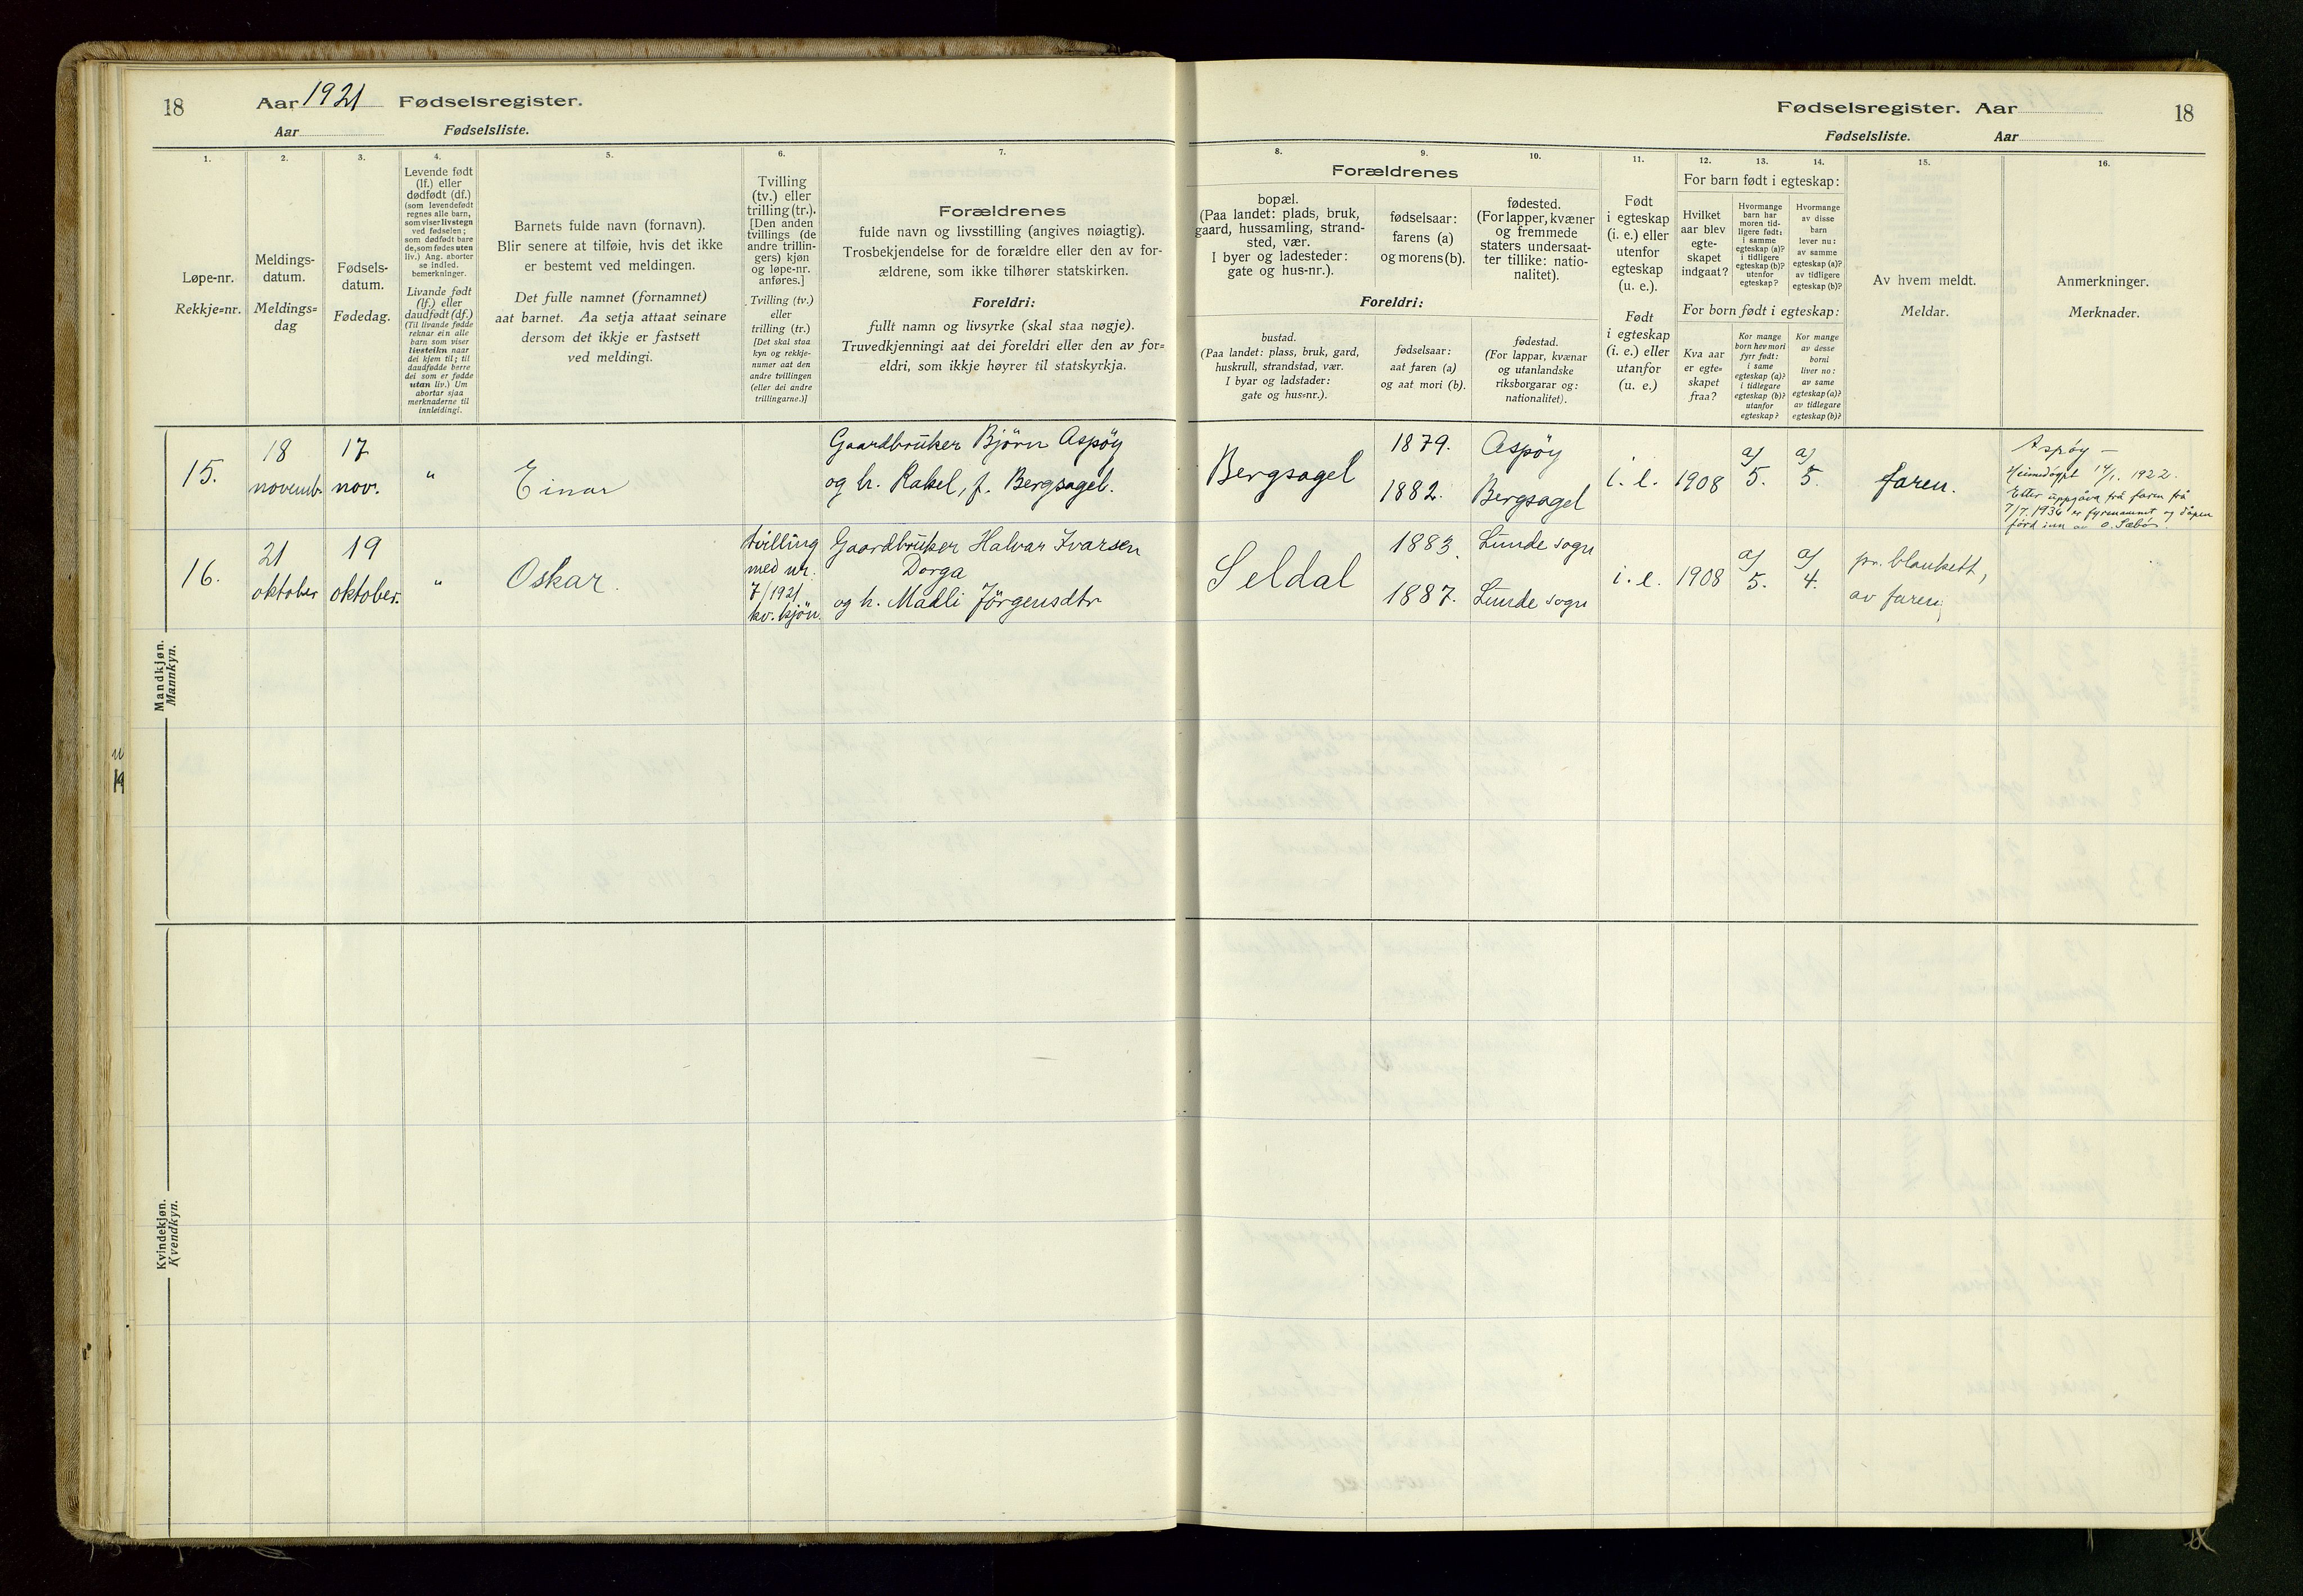 18
Aar 1921 Fødselsregister.
Aar Fødselsliste.
1.
2.
3.
4.
5.
6.
7.
Løpe-nr.
Rekkje=nr.
Meldings-
datum.
Meldings=
dag
Fødsels-
datum.
Fødedag.
Levende født
(lf.) eller
dødfødt (df.)
(som levendefødt
regnes alle barn,
som viser livstegn
ved fødselen;
som dødfødt bare
de, som fødes uten
liv.) Ang. aborter
se indled.
bemerkninger.
Livande født
(lf.) eller
daudfødt (df.)
(Til livande fødde
reknar ein alle
barn som viser
livsteikn naar
dei kjem til; til
daudfødde berre
dei som er fødde
utan liv.) Um
abortar sjaa
merknaderne til
innleidingi.
Barnets fulde navn (fornavn).
Blir senere at tilføie, hvis det ikke
er bestemt ved meldingen.
Det fulle namnet (fornamnet)
aat barnet. Aa setja attaat seinare
dersom det ikkje er fastsett
ved meldingi.
Tvilling
(tv.) eller
trilling (tr.).
[Den anden
tvillings (de
andre trillin-
gers) kjøn
og løpe-nr.
anføres.]
Tvilling (tv.)
eller
trilling (tr.)
[Det skal staa
kyn og rekkje-
numer aat den
andre tvillingen
(eller dei andre
trillingarne.)]
Forældrenes
fulde navn og livsstilling (angives nøiagtig).
Trosbekjendelse for de forældre eller den av for-
ældrene, som ikke tilhører statskirken.
Foreldri:
fullt namn og livsyrke (skal staa nøgje).
Truvedkjenningi aat dei foreldri eller den av for=
eldri, som ikkje høyrer til statskyrkja.
15.
18
novemb.
17
nov.
"
Einar
Gaardbruker Björn Aspøy
og h. Rakel, f. Bergsagel.
16.
21
oktober
19
oktober.
"
Oskar.
tvilling
med nr.
7/1921
kv. kjön.
Gaardbruker Halvar Ivarsen
Dorga
og h. Madli Jörgensdtr
Mandkjøn.
Mannkyn.
Kvindekjøn.
Kvendkyn.
Fødselsregister. Aar
18
Fødselsliste. Aar
8.
9.
10.
11.
12.
13.
14.
15.
16.
Forældrenes
bopæl.
(Paa landet: plads, bruk,
gaard, hussamling, strand-
sted, vær.
I byer og ladesteder:
gate og hus-nr.).
fødselsaar:
farens (a)
og morens (b).
fødested.
(For lapper, kvæner
og fremmede
staters undersaat-
ter tillike: natio-
nalitet).
Foreldri:
bustad.
(Paa landet: plass, bruk, gard,
huskrull, strandstad, vær.
I byar og ladstader:
gate og hus=nr.).
fødselsaar:
aat faren (a)
og aat mori (b).
fødestad.
(For lappar, kvænar
og utanlandske
riksborgarar og:
nationalitet).
Født
i egteskap
(i. e.) eller
utenfor
egteskap
(u. e.).
Født
i egteskap
(i. e.) eller
utanfor
(u. e.)
For barn født i egteskap:
Hvilket
aar blev
egte-
skapet
indgaat?
Hvormange
barn har
moren tid-
ligere født:
i samme
egteskap (a)?
i tidligere
egteskap (b)?
utenfor
egteskap?
Hvormange
av disse
barn
lever nu:
av samme
egteskap (a)?
av tidligere
egteskap (b)?
For born født i egteskap:
Kva aar
er egte-
skapet
fraa?
Kor mange
born hev mori
fyrr født:
i same
egteskap (a)?
i tidlegare
egteskap (b)?
utanfor
egteskap?
Kor mange
av desse
borni
liver no:
av same
egteskap (a)?
av tidlegare
egteskap (b)?
Av hvem meldt.
Meldar.
Anmerkninger.
Merknader.
Bergsagel
1879.
1882.
Aspöy
Bergsagel
i. e.
1908
a/
5.
a/
5.
faren.
Aspøy –
Heimedøypt 14/1. 1922.
Etter uppgåva frå faren frå
7/7. 1936 er fyrenamnet og dåpen
förd inn av O. Sæbö.
Seldal
1883.
1887.
Lunde sogn
Lunde sogn
i. e.
1908
a/
5.
a/
4.
pr. blankett,
av faren.